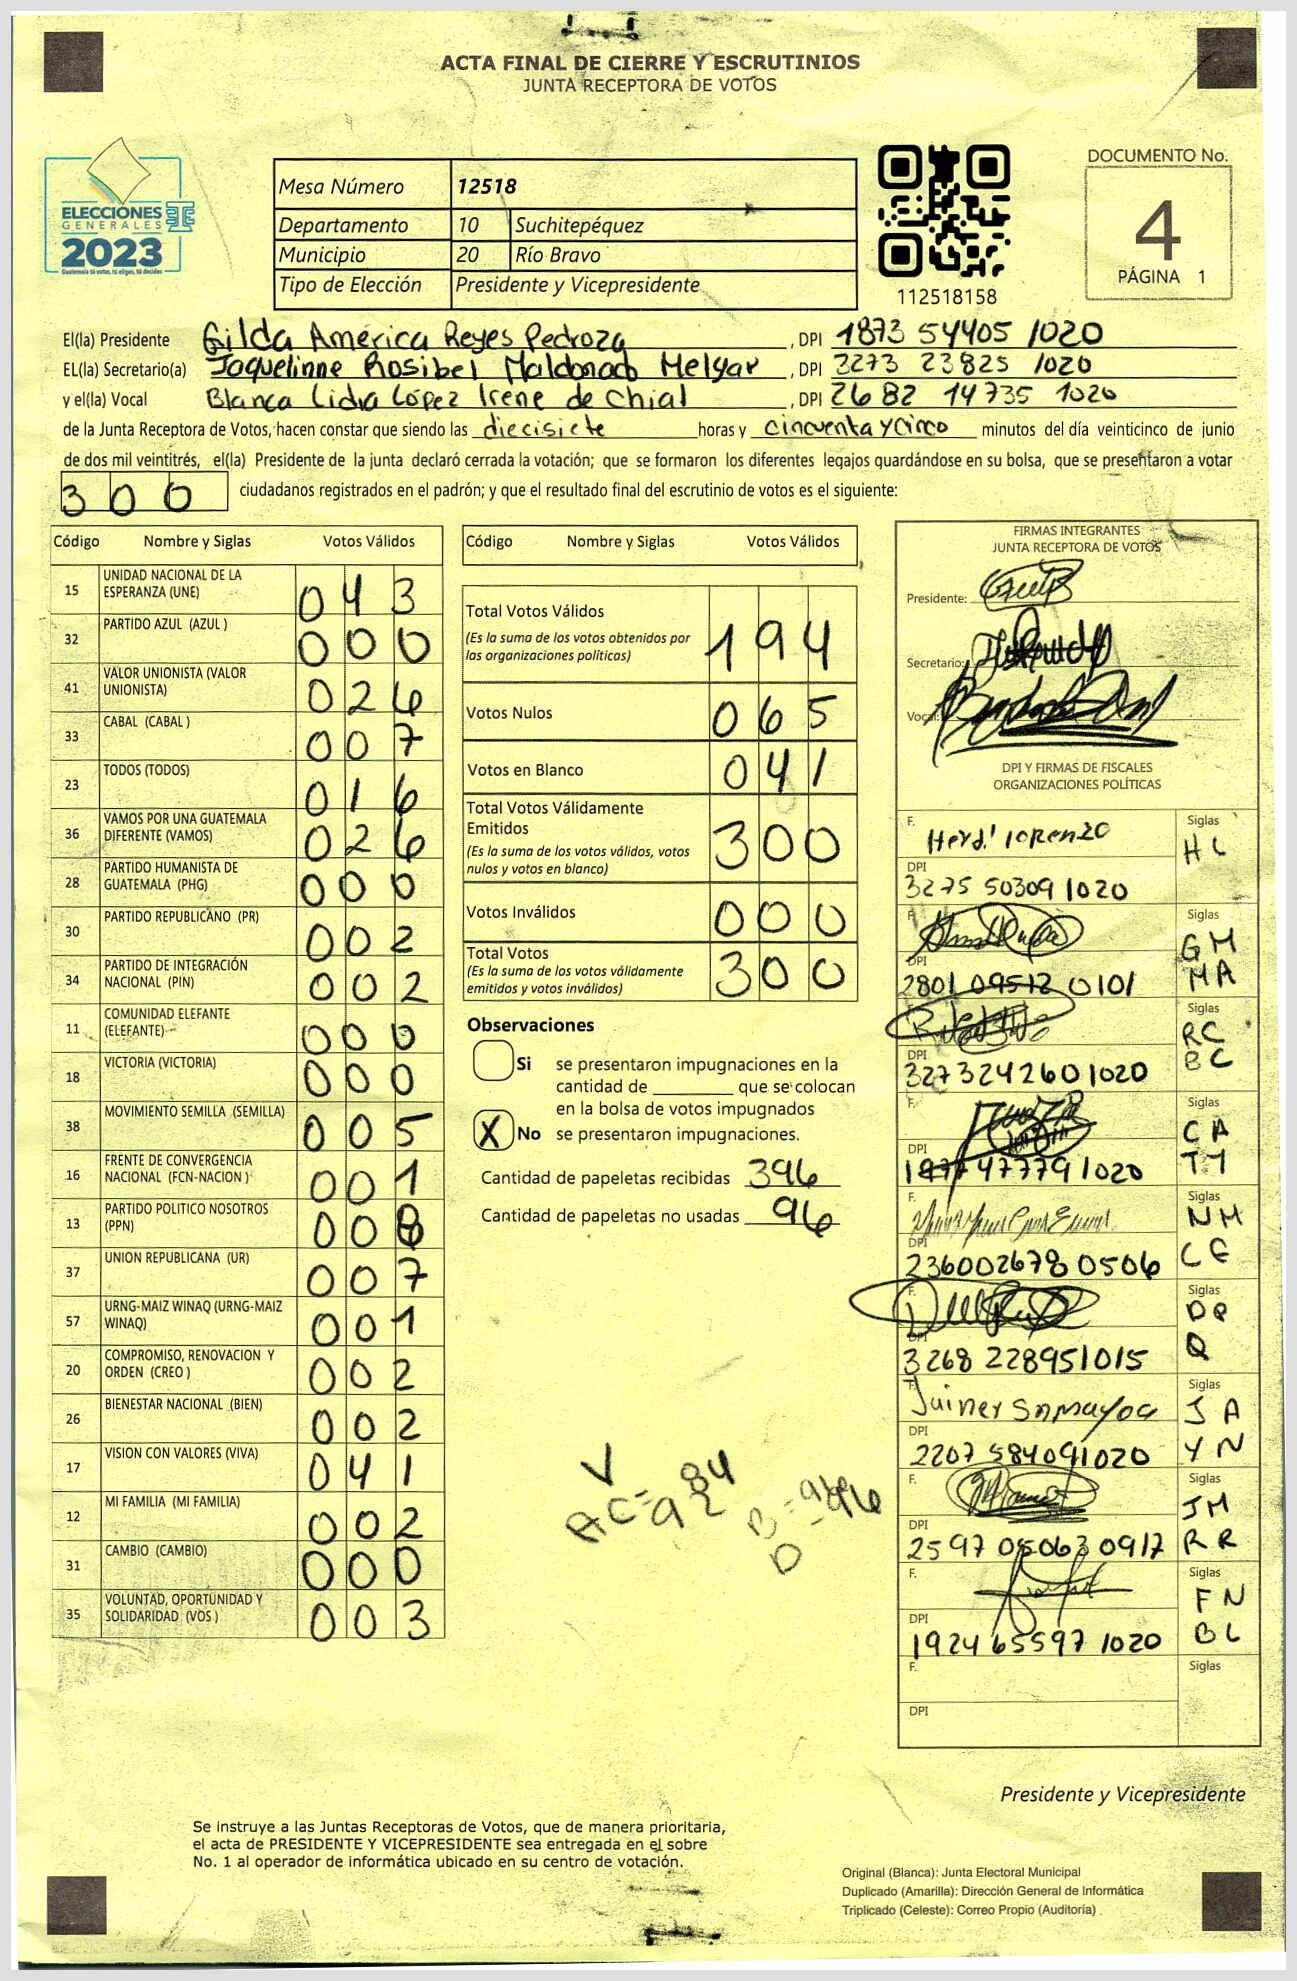 ACTA FINAL DE CIERRE Y ESCRUTINIOS
JUNTA RECEPTORA DE VOTOS
ELECCIONES
GENERALES
2023
Guatemala tú votas, tú eliges, tú decides
Mesa Número 12518
Departamento 10 Suchitepéquez
Municipio 20 Río Bravo
Tipo de Elección Presidente y Vicepresidente
112518158
DOCUMENTO No.
4
PÁGINA 1
El(la) Presidente Gilda América Reyes Pedroza, DPI 1873 54405 1020
EL(la) Secretario(a) Jaquelinne Rosibel Maldonado Melgar, DPI 3273 23825 1020
y el(la) Vocal Blanca Lidia López Irene de Chial, DPI 2682 14735 1020
de la Junta Receptora de Votos, hacen constar que siendo las diecisiete horas y cincuenta y cinco minutos del día veinticinco de junio
de dos mil veintitrés, el(la) Presidente de la junta declaró cerrada la votación; que se formaron los diferentes legajos guardándose en su bolsa, que se presentaron a votar
300 ciudadanos registrados en el padrón; y que el resultado final del escrutinio de votos es el siguiente:
Código Nombre y Siglas Votos Válidos
15 UNIDAD NACIONAL DE LA ESPERANZA (UNE) 043
32 PARTIDO AZUL (AZUL ) 000
41 VALOR UNIONISTA (VALOR UNIONISTA) 026
33 CABAL (CABAL ) 007
23 TODOS (TODOS) 016
36 VAMOS POR UNA GUATEMALA DIFERENTE (VAMOS) 026
28 PARTIDO HUMANISTA DE GUATEMALA (PHG) 000
30 PARTIDO REPUBLICANO (PR) 002
34 PARTIDO DE INTEGRACIÓN NACIONAL (PIN) 002
11 COMUNIDAD ELEFANTE (ELEFANTE) 000
18 VICTORIA (VICTORIA) 000
38 MOVIMIENTO SEMILLA (SEMILLA) 005
16 FRENTE DE CONVERGENCIA NACIONAL (FCN-NACION ) 001
13 PARTIDO POLITICO NOSOTROS (PPN) 008
37 UNION REPUBLICANA (UR) 007
57 URNG-MAIZ WINAQ (URNG-MAIZ WINAQ) 001
20 COMPROMISO, RENOVACION Y ORDEN (CREO ) 002
26 BIENESTAR NACIONAL (BIEN) 002
17 VISION CON VALORES (VIVA) 041
12 MI FAMILIA (MI FAMILIA) 002
31 CAMBIO (CAMBIO) 000
35 VOLUNTAD, OPORTUNIDAD Y SOLIDARIDAD (VOS ) 003
Código Nombre y Siglas Votos Válidos
Total Votos Válidos 194
(Es la suma de los votos obtenidos por
las organizaciones políticas)
Votos Nulos 065
Votos en Blanco 041
Total Votos Válidamente
Emitidos 300
(Es la suma de los votos válidos, votos
nulos y votos en blanco)
Votos Inválidos 000
Total Votos 300
(Es la suma de los votos válidamente
emitidos y votos inválidos)
Observaciones
Si se presentaron impugnaciones en la
cantidad de ________ que se colocan
en la bolsa de votos impugnados
X No se presentaron impugnaciones.
Cantidad de papeletas recibidas 396
Cantidad de papeletas no usadas 96
FIRMAS INTEGRANTES
JUNTA RECEPTORA DE VOTOS
Presidente:
Secretario:
Vocal:
DPI Y FIRMAS DE FISCALES
ORGANIZACIONES POLÍTICAS
F. Siglas
HL
DPI
3275 50309 1020
F. Siglas
GM
MA
DPI
2801 09512 0101
Siglas
RC
BC
DPI
3273242601020
F. Siglas
CA
TM
DPI
1977477791020
F. Siglas
NM
CE
DPI
2360026780506
F. Siglas
DP
Q
DPI
3268 228951015
F. Siglas
JA
YN
DPI
2207 584091020
F. Siglas
JM
RR
DPI
2597 05063 0917
F. Siglas
FN
BL
DPI
1924 65597 1020
F. Siglas
DPI
Presidente y Vicepresidente
Se instruye a las Juntas Receptoras de Votos, que de manera prioritaria,
el acta de PRESIDENTE Y VICEPRESIDENTE sea entregada en el sobre
No. 1 al operador de informática ubicado en su centro de votación.
Original (Blanca): Junta Electoral Municipal
Duplicado (Amarilla): Dirección General de Informática
Triplicado (Celeste): Correo Propio (Auditoría)